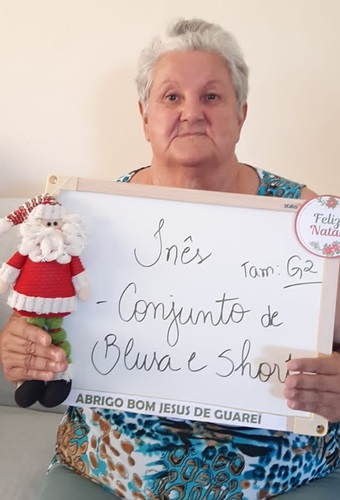 Feliz
Natal
Inês
Tam: G2
- Conjunto de
Blusa e Short
ABRIGO BOM JESUS DE GUAREÍ